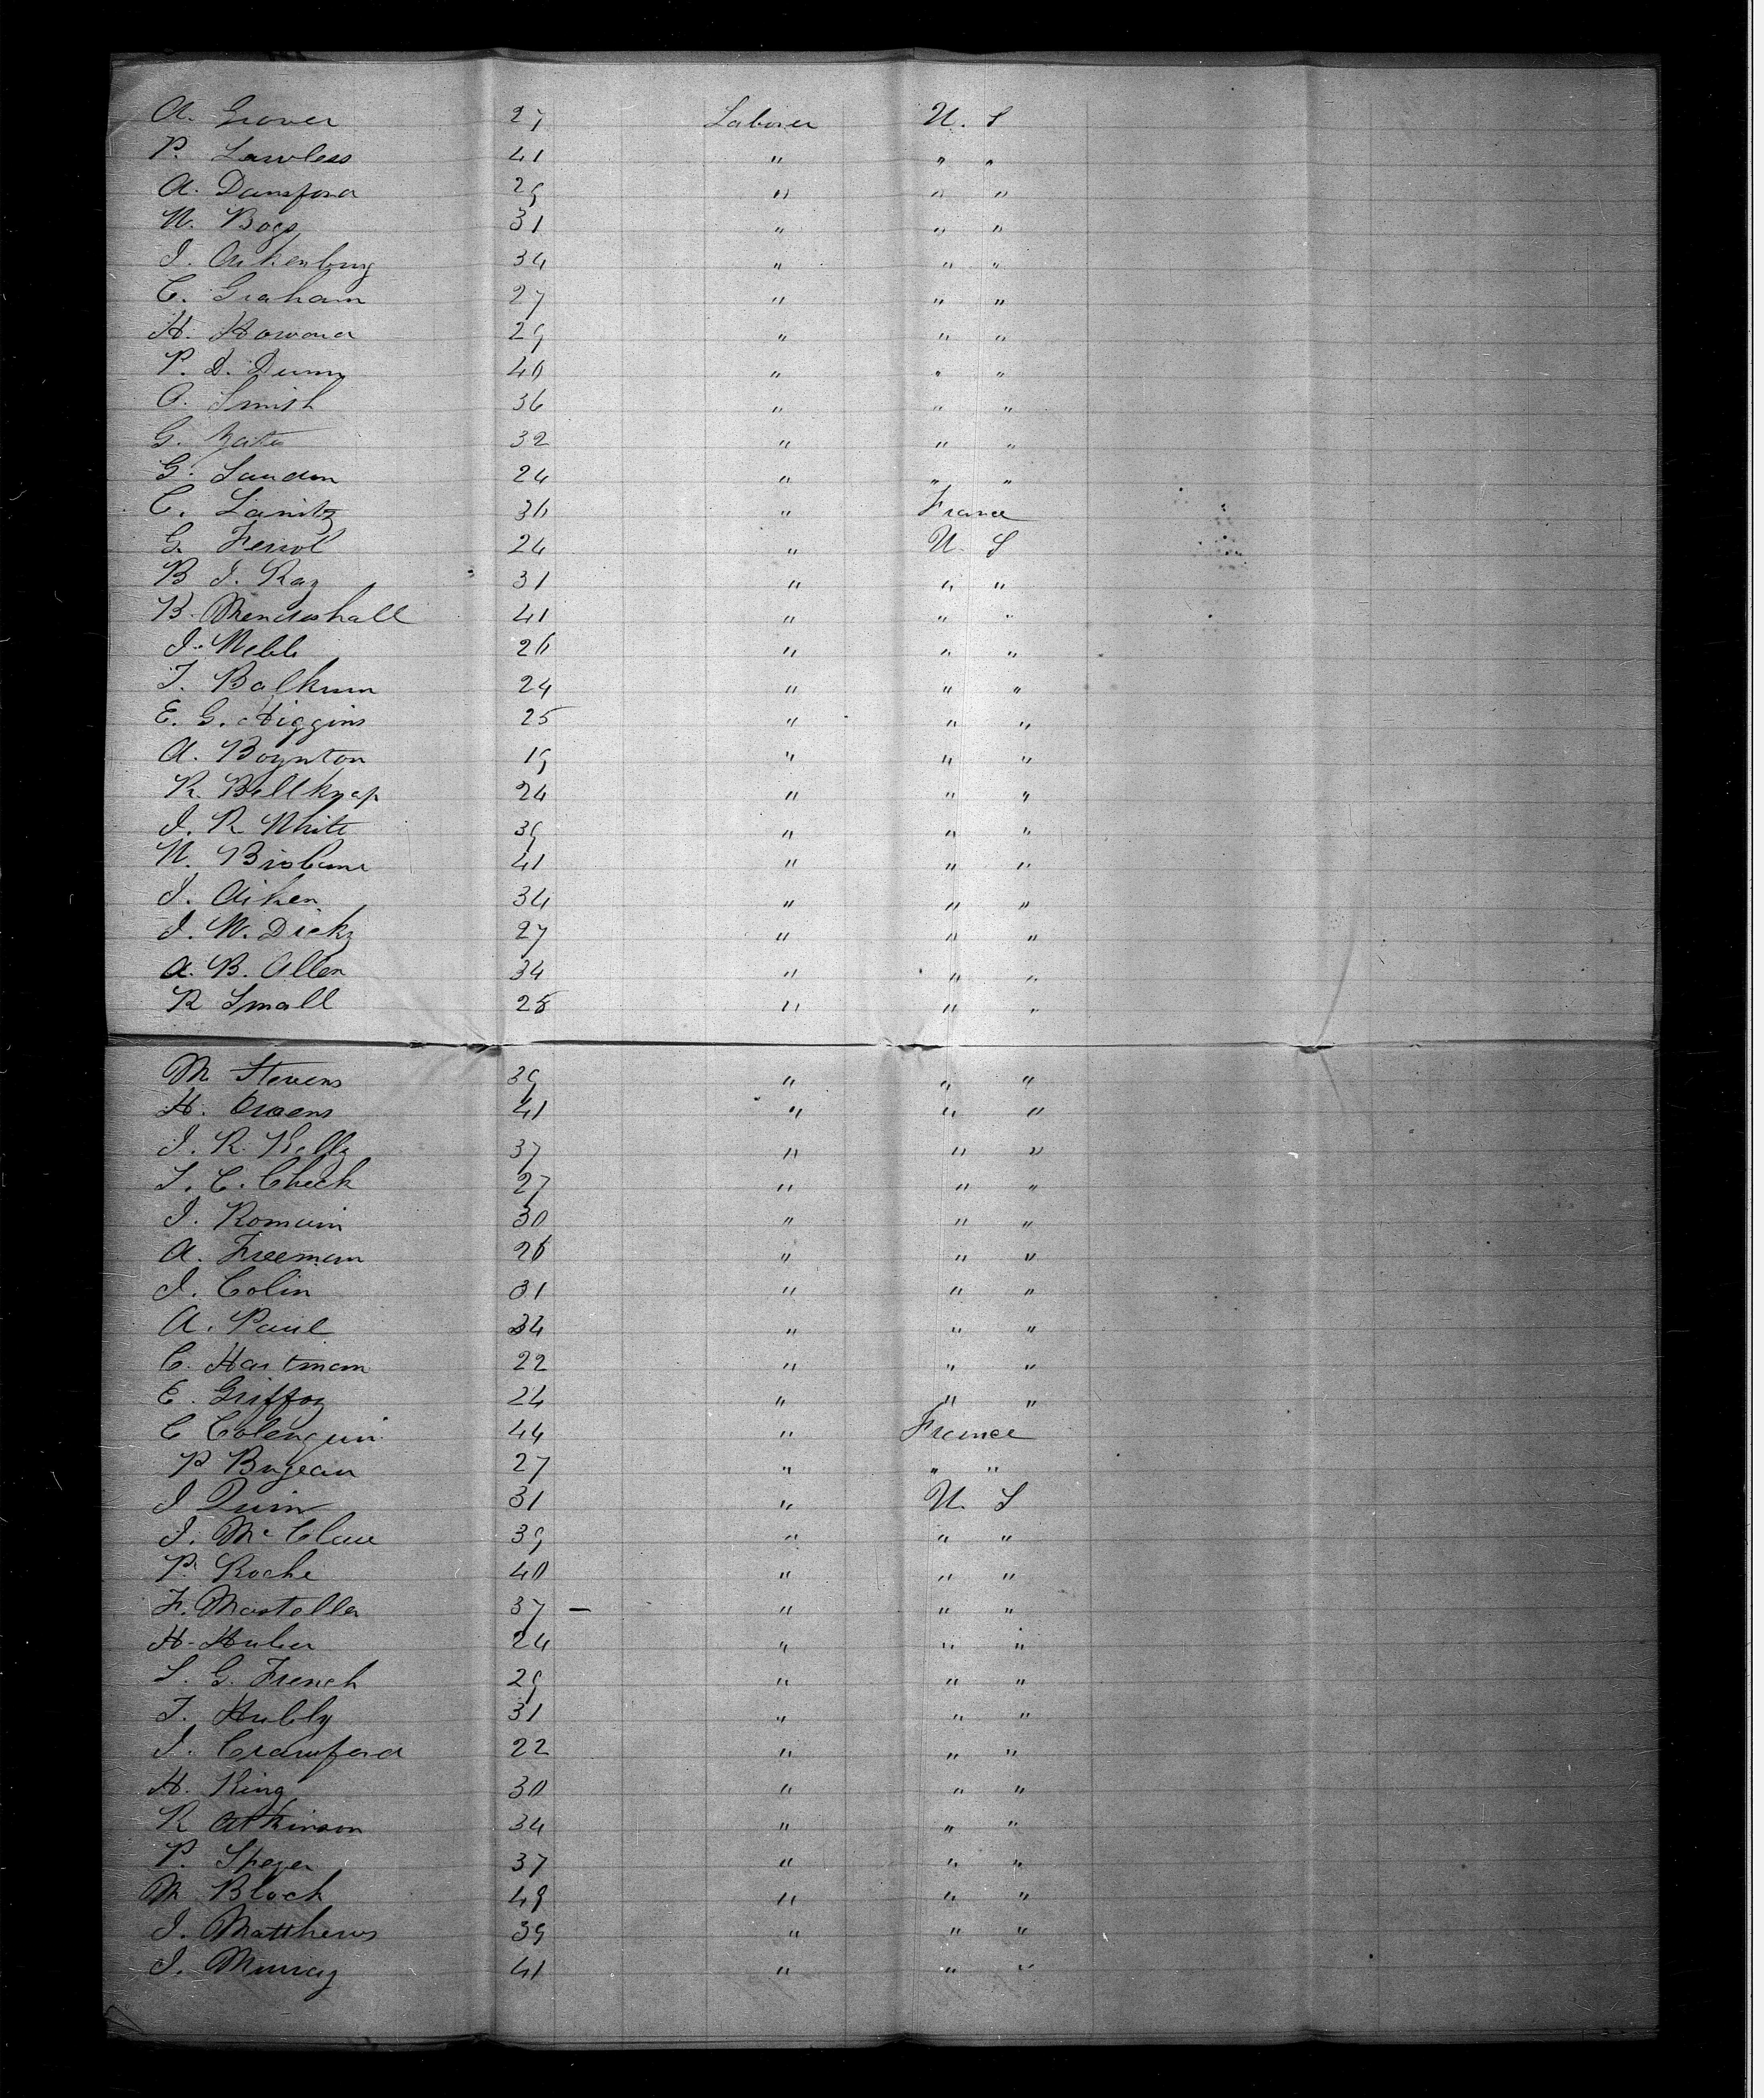 A. Grover 27 Laborer U. S
P. Lawless 41 " " "
A. Dansford 29 " " "
W. Bogs 31 " " "
J. 34 " " "
C. Graham 27 " " "
H. Howard 29 " " "
P. D. Dunn 40 " " "
O. Smith 36 " " "
G. 32 " " "
G. Landon 24 " " "
C. Lanitz 36 " France
G. 24 " U. S
B J. Ray 31 " " "
B. Mendenhall 41 " " "
J. Webb 26 " " "
T. Balkum 24 " " "
E. G. Higgins 25 " " "
A. Boynton 19 " " "
R. Bellknap 24 " " "
J. R White 39 " " "
W. Brisbane 41 " " "
J. Aiken 34 " " "
J. W. Dicky 27 " " "
A. B. Allen 34 " " "
R Small 25 " " "
M Stevens 39 " " "
H. Owens 41 " " "
J. R. Kelly 37 " " "
T. C. Cheek 27 " " "
J. Romain 30 " " "
A. Freeman 26 " " "
J. Colin 31 " " "
A. Paul 34 " " "
C. Hartman 22 " " "
E. Griffoy 24 " " "
C Colenguin 44 " France
P Bujeau 27 " " "
J Quin 31 " U. S
J. Mc Clare 39 " " "
P. Roche 40 " " "
F. Mosteller 37 – " " "
H. Huber 24 " " "
S. G. French 29 " " "
T. Hubly 31 " " "
J. Crawford 22 " " "
H. King 30 " " "
R Atkinson 34 " " "
P. Speyer 37 " " "
M Block 49 " " "
J. Matthews 39 " " "
J. Murray 41 " " "